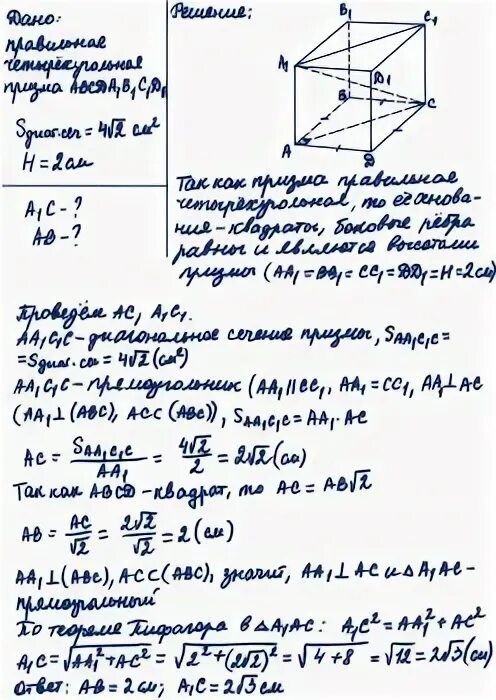 Дано:
правильная
четырёхугольная
призма ABCDA₁B₁C₁D₁
Sдиаг.сеч = 4√2 см²
H = 2 см
A₁C - ?
AB - ?
Решение:
B₁
C₁
A₁
D₁
B
C
A
D
Так как призма правильная
четырёхугольная, то её основа-
ния - квадраты, боковые рёбра
равны и являются высотами
призмы (AA₁ = BB₁ = CC₁ = DD₁ = H = 2 см)
Проведём AC, A₁C₁.
AA₁C₁C - диагональное сечение призмы, SAA₁C₁C =
= Sдиаг.сеч = 4√2 (см²)
AA₁C₁C - прямоугольник (AA₁ || CC₁, AA₁ = CC₁, AA₁ ⊥ AC
(AA₁ ⊥ (ABC), AC ⊂ (ABC)), SAA₁C₁C = AA₁ · AC
AC = SAA₁C₁C / AA₁ = 4√2 / 2 = 2√2 (см)
Так как ABCD - квадрат, то AC = AB√2
AB = AC / √2 = 2√2 / √2 = 2 (см)
AA₁ ⊥ (ABC), AC ⊂ (ABC), значит, AA₁ ⊥ AC и △ A₁AC -
прямоугольный
По теореме Пифагора в △ A₁AC: A₁C² = AA₁² + AC²
A₁C = √AA₁² + AC² = √2² + (2√2)² = √4 + 8 = √12 = 2√3 (см)
Ответ: AB = 2 см; A₁C = 2√3 см